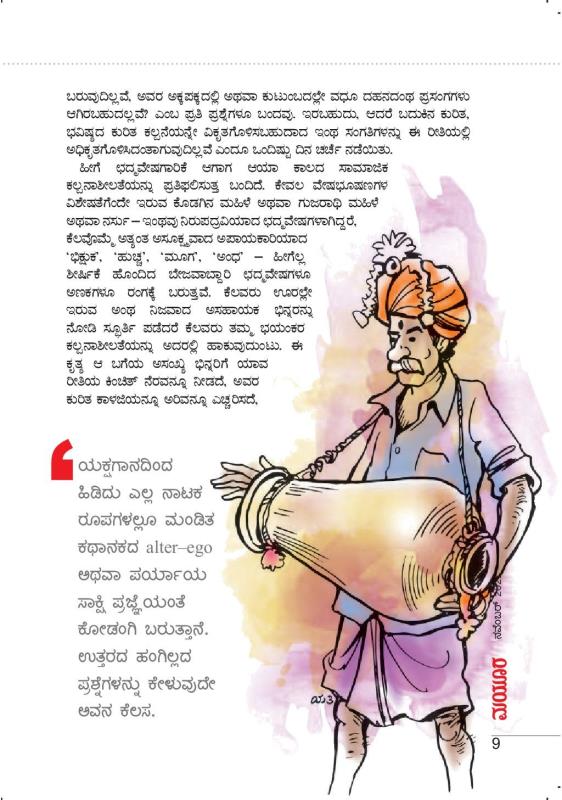 ಬರುವುದಿಲ್ಲವೆ, ಅವರ ಅಕ್ಕಪಕ್ಕದಲ್ಲಿ ಅಥವಾ ಕುಟುಂಬದಲ್ಲೇ ವಧೂ ದಹನದಂಥ ಪ್ರಸಂಗಗಳು
ಆಗಿರಬಹುದಲ್ಲವೆ? ಎಂಬ ಪ್ರತಿ ಪ್ರಶ್ನೆಗಳೂ ಬಂದವು. ಇರಬಹುದು, ಆದರೆ ಬದುಕಿನ ಕುರಿತ,
ಭವಿಷ್ಯದ ಕುರಿತ ಕಲ್ಪನೆಯನ್ನೇ ವಿಕೃತಗೊಳಿಸಬಹುದಾದ ಇಂಥ ಸಂಗತಿಗಳನ್ನು ಈ ರೀತಿಯಲ್ಲಿ
ಅಧಿಕೃತಗೊಳಿಸಿದಂತಾಗುವುದಿಲ್ಲವೆ ಎಂದೂ ಒಂದಿಷ್ಟು ದಿನ ಚರ್ಚೆ ನಡೆಯಿತು.
ಹೀಗೆ ಛದ್ಮವೇಷಗಾರಿಕೆ ಆಗಾಗ ಆಯಾ ಕಾಲದ ಸಾಮಾಜಿಕ
ಕಲ್ಪನಾಶೀಲತೆಯನ್ನು ಪ್ರತಿಫಲಿಸುತ್ತ ಬಂದಿದೆ. ಕೇವಲ ವೇಷಭೂಷಣಗಳ
ವಿಶೇಷತೆಗೆಂದೇ ಇರುವ ಕೊಡಗಿನ ಮಹಿಳೆ ಅಥವಾ ಗುಜರಾಥಿ ಮಹಿಳೆ
ಅಥವಾ ನರ್ಸು – ಇಂಥವು ನಿರುಪದ್ರವಿಯಾದ ಛದ್ಮವೇಷಗಳಾಗಿದ್ದರೆ,
ಕೆಲವೊಮ್ಮೆ ಅತ್ಯಂತ ಅಸೂಕ್ಷ್ಮವಾದ ಅಪಾಯಕಾರಿಯಾದ
‘ಭಿಕ್ಷುಕ’, ‘ಹುಚ್ಚ’, ‘ಮೂಗ’, ‘ಅಂಧ’ – ಹೀಗೆಲ್ಲ
ಶೀರ್ಷಿಕೆ ಹೊಂದಿದ ಬೇಜವಾಬ್ದಾರಿ ಛದ್ಮವೇಷಗಳೂ
ಅಣಕಗಳೂ ರಂಗಕ್ಕೆ ಬರುತ್ತವೆ. ಕೆಲವರು ಊರಲ್ಲೇ
ಇರುವ ಅಂಥ ನಿಜವಾದ ಅಸಹಾಯಕ ಭಿನ್ನರನ್ನು
ನೋಡಿ ಸ್ಫೂರ್ತಿ ಪಡೆದರೆ ಕೆಲವರು ತಮ್ಮ ಭಯಂಕರ
ಕಲ್ಪನಾಶೀಲತೆಯನ್ನು ಅದರಲ್ಲಿ ಹಾಕುವುದುಂಟು. ಈ
ಕೃತ್ಯ ಆ ಬಗೆಯ ಅಸಂಖ್ಯ ಭಿನ್ನರಿಗೆ ಯಾವ
ರೀತಿಯ ಕಿಂಚಿತ್ ನೆರವನ್ನೂ ನೀಡದೆ, ಅವರ
ಕುರಿತ ಕಾಳಜಿಯನ್ನೂ ಅರಿವನ್ನೂ ಎಚ್ಚರಿಸದೆ,
‘ಯಕ್ಷಗಾನದಿಂದ
ಹಿಡಿದು ಎಲ್ಲ ನಾಟಕ
ರೂಪಗಳಲ್ಲೂ ಮಂಡಿತ
ಕಥಾನಕದ alter–ego
ಅಥವಾ ಪರ್ಯಾಯ
ಸಾಕ್ಷಿ ಪ್ರಜ್ಞೆಯಂತೆ
ಕೋಡಂಗಿ ಬರುತ್ತಾನೆ.
ಉತ್ತರದ ಹಂಗಿಲ್ಲದ
ಪ್ರಶ್ನೆಗಳನ್ನು ಕೇಳುವುದೇ
ಅವನ ಕೆಲಸ.
ಯತಿ
ಮಯೂರ ನವೆಂಬರ್
9